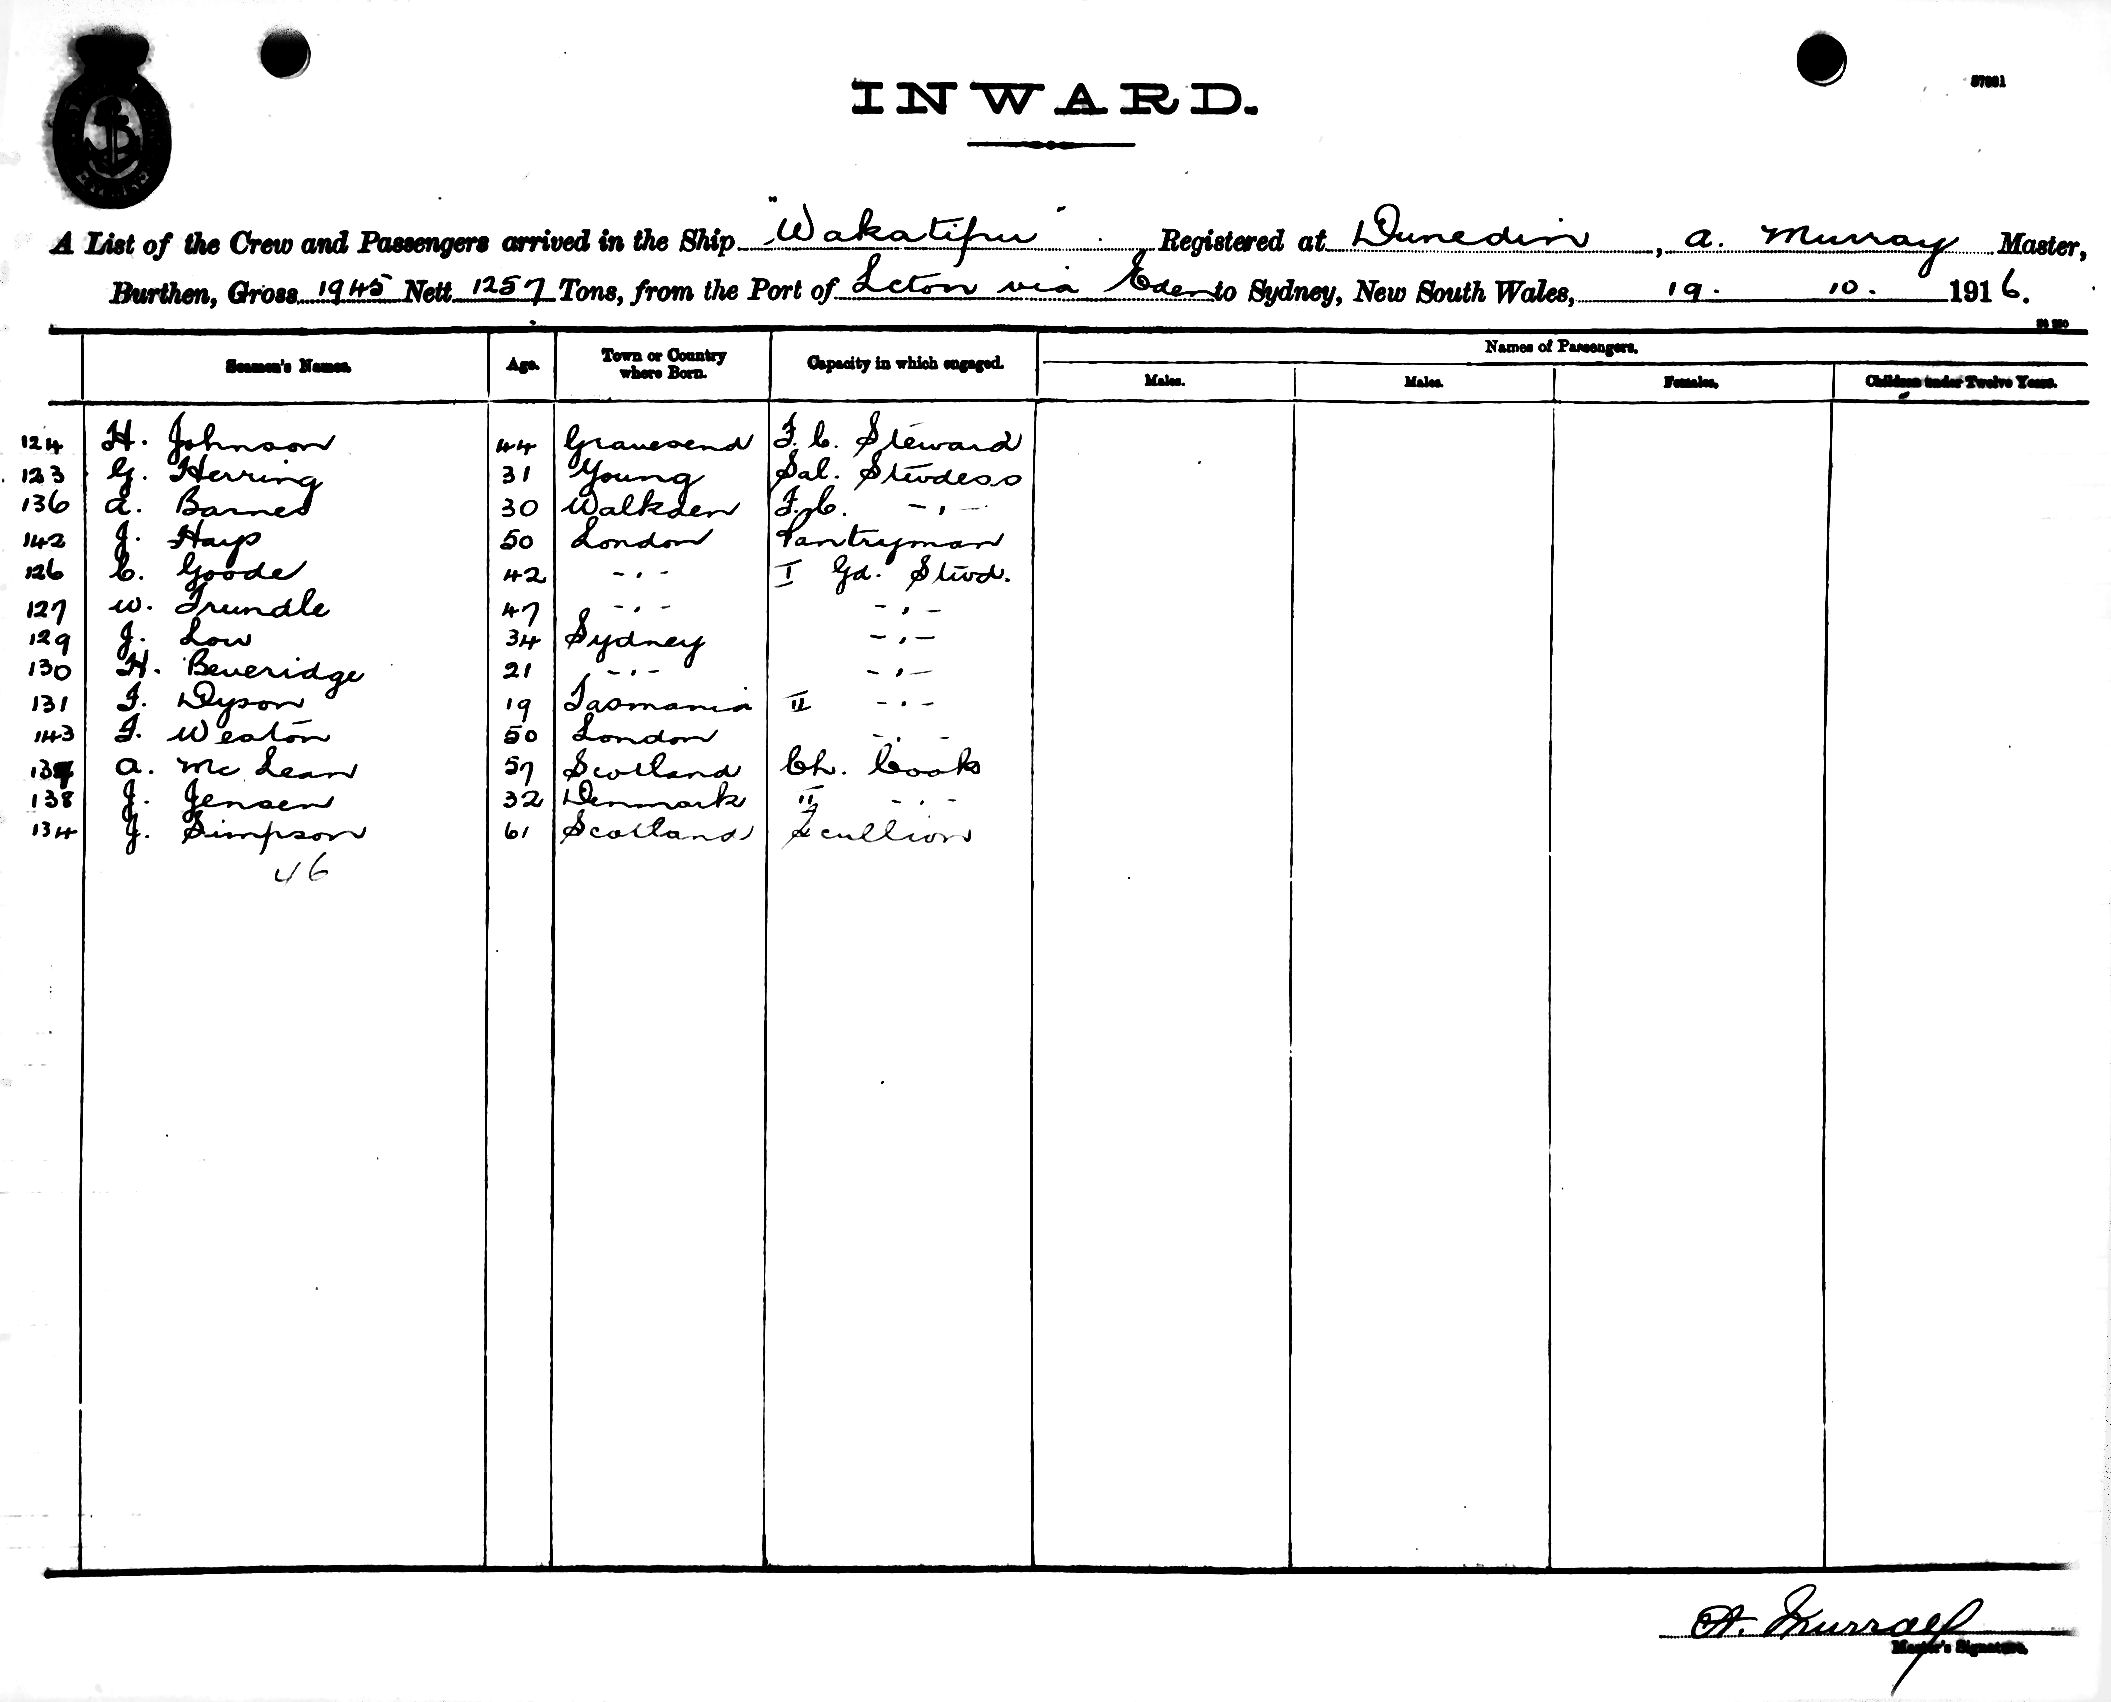 INWARD.
57981
A List of the Crew and Passengers arrived in the Ship "Wakatipu" Registered at Dunedin, A. Murray Master,
Burthen, Gross 1945 Nett 1257 Tons, from the Port of Lcton via Eden to Sydney, New South Wales, 19. 10. 1916.
Seamen's Names. Age. Town or Country where Born. Capacity in which engaged. Names of Passengers.
Males. Males. Females. Children under Twelve Years.
124 H. Johnson 44 Gravesend F.C. Steward
123 G. Herring 31 Young Sal. Stwdess
136 A. Barnes 30 Walkden F.C. - " -
142 J. Hays 50 London Pantryman
126 C. Goode 42 - " - I Gd. Stwd.
127 W. Trundle 47 - " - - " -
129 J. Low 34 Sydney - " -
130 H. Beveridge 21 - " - - " -
131 F. Dyson 19 Tasmania II - " -
143 F. Weston 50 London - " -
A. Mc Lean 57 Scotland Ch. Cook
138 J. Jensen 32 Denmark II - " -
134 J. Simpson 61 Scotland Scullion
46
A. Murray
Master's Signature.